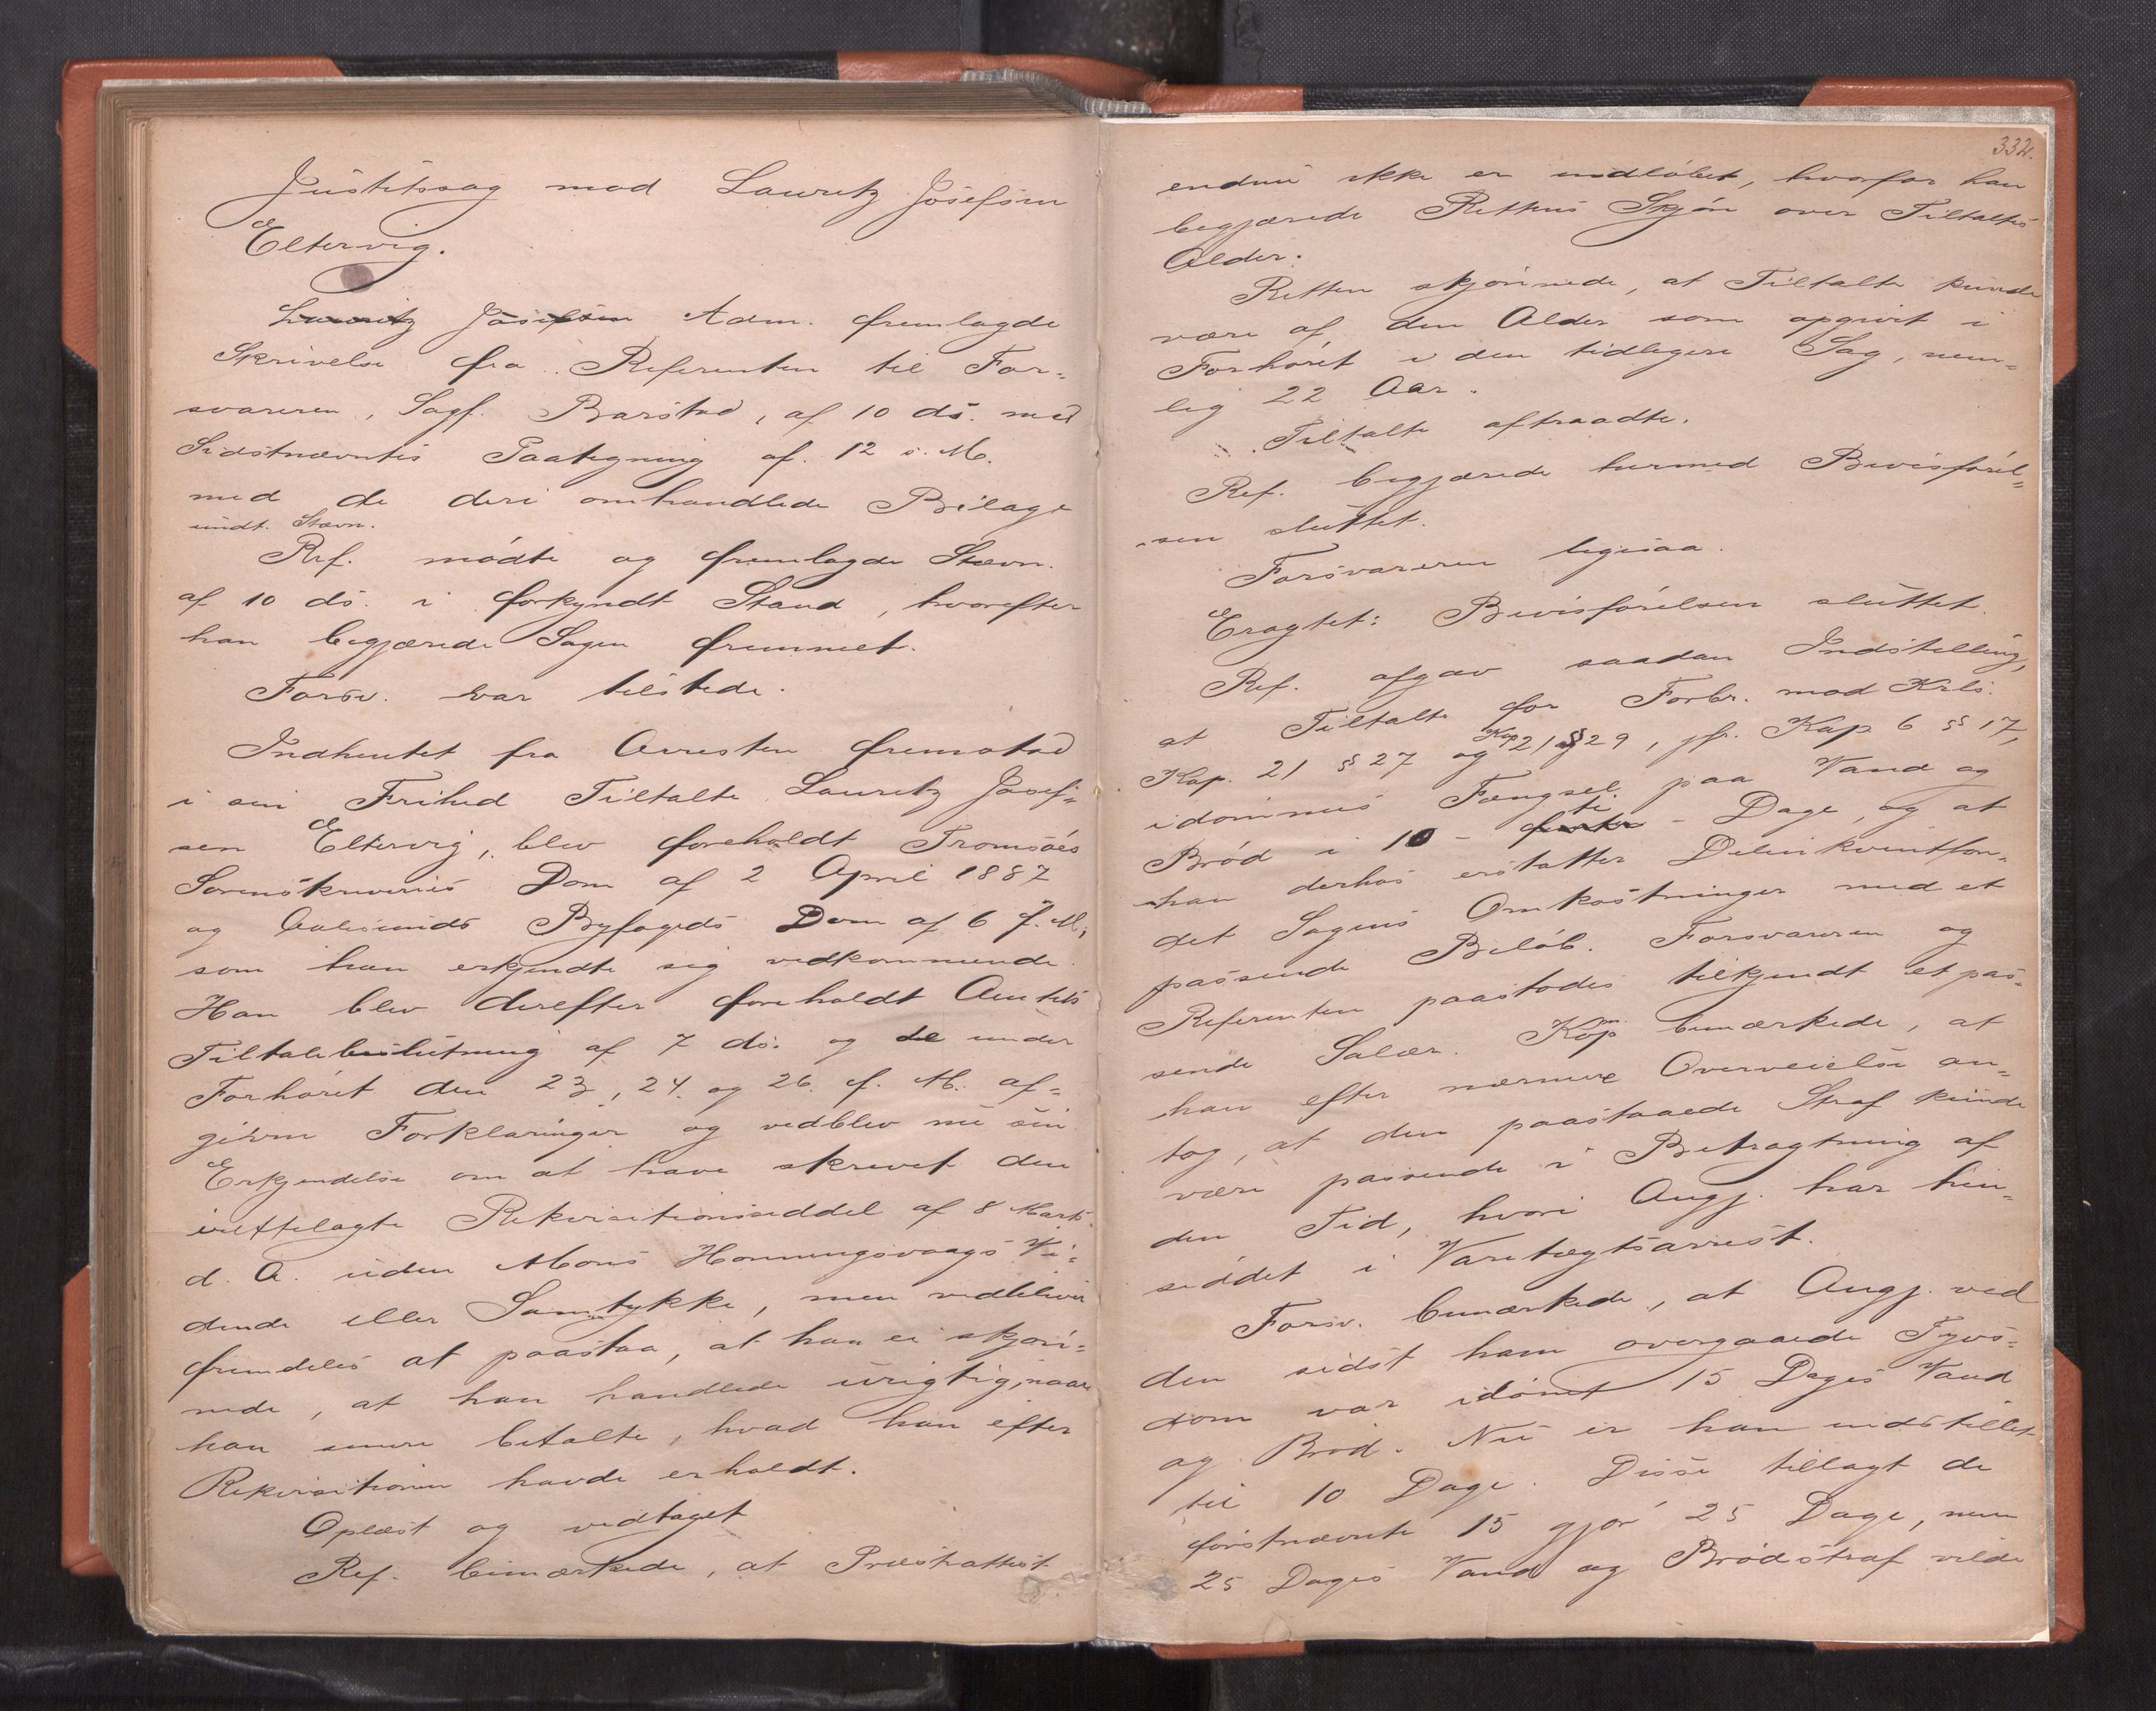 Justitssag mod Lauritz Josefsen
Eltervig.
Lauritz Josefsen Adm. fremlagde
Skrivelse fra Referenten til For-
svareren, Sagf. Barstad, af 10 ds. med
Sidstnævntes Paategning af 12 s. M.
med de deri omhandlede Bilage
undt. Stævn.
Ref. mødte og fremlagde Stævn.
af 10 ds. i forkyndt Stand, hvorefter
han begjærede Sagen fremmet.
Forsv. var tilstede.
Indhentet fra Arresten fremstod
i sin Frihed Tiltalte Lauritz Josef-
sen Eltervig, blev foreholdt Tromsøes
Sorenskriveries Dom af 2 April 1887
og Aalesunds Byfogeds Dom af 6 f. M.,
som han erkjendte sig vedkommende.
Han blev derefter foreholdt Amtets
Tiltalebeslutning af 7 ds. og de under
Forhøret den 23, 24. og 26. f. M. af-
givne Forklaringer og vedblev nu sin
Erkjendelse om at have skrevet den
irettelagte Rekvisitionsseddel af 8 Marts
d. A. uden Mons Honningsvaags Vi-
dende eller Samtykke, men vedbliver
fremdeles at paastaa, at han ei skjøn-
nede, at han handlede urigtig, naar
han senere betalte, hvad han efter
Rekvisitionen havde erholdt.
Oplæst og vedtaget
Ref. bemærkede, at Præsteattest
332.
endnu ikke er indløbet, hvorfor han
begjærede Rettens Skjøn over Tiltaltes
Alder.
Retten skjønnede, at Tiltalte kunde
være af den Alder som opgivet i
Forhøret i den tidligere Sag, nem-
lig 22 Aar.
Tiltalte aftraadte.
Ref. begjærede hermed Bevisførel-
sen sluttet.
Forsvareren ligesaa.
Eragtet: Bevisførelsen sluttet.
Ref. afgav saadan Indstilling,
at Tiltalte for Forbr. mod Krls.
Kap. 21 § 27 og Kap 21 § 29, jfr. Kap 6 §§ 17,
idømmes Fængsel paa Vand og
Brød i 10 - ti - Dage, og at
han derhos erstatter Delinkventfon-
det Sagens Omkostninger med et
passende Beløb. Forsvareren og
Referenten paastodes tilkjendt et pas-
sende Salær. Komp bemærkede, at
han efter nærmere Overveielse an-
tog, at den paastaaede Straf kunde
være passende i Betragtning af
den Tid, hvori Angj. har hen-
siddet i Varetægtsarrest.
Forsv. bemærkede, at Angj. ved
den sidst ham overgaaede Tyvs-
dom var idømt 15 Dages Vand
og Brød. Nu er han indstillet
til 10 Dage. Disse tillagt de
førstnævnte 15 gjør 25 Dage, men
25 Dages Vand og Brødstraf vilde